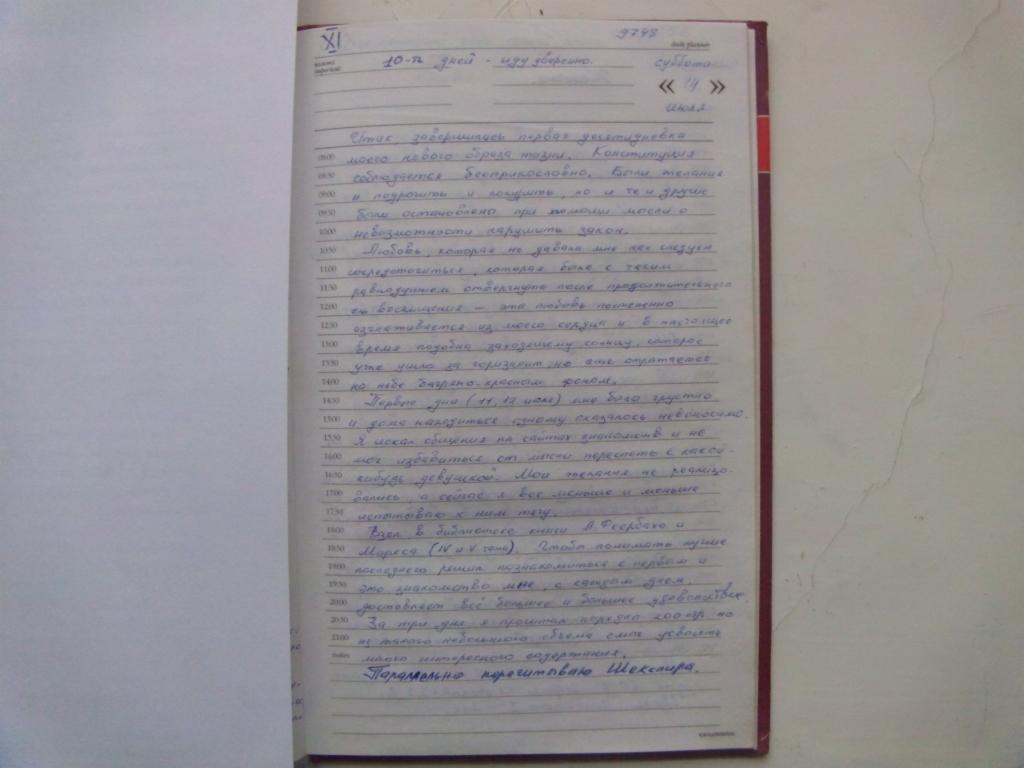 XI
9748
daily planner
10-ть дней - иду уверенно.
суббота
« 14 »
июля
Итак, завершилась первая десятидневка
08:00 моего нового образа жизни. Конституция
08:30 соблюдается беспрекословно. Были желания
09:00 и подрочить и покурить, но и те и другие
09:30 были остановлены при помощи мысли о
10:00 невозможности нарушить закон.
10:30 Любовь, которая не давала мне как следует
11:00 сосредоточиться, которая была с таким
11:30 равнодушием отвергнута после продолжительного
12:00 ею восхищения - эта любовь постепенно
12:30 изглаживается из моего сердца и в настоящее
13:00 время подобна заходящему солнцу, которое
13:30 уже ушло за горизонт, но еще отражается
14:00 на небе багряно-красным фоном.
14:30 Первые дни (11, 12 июля) мне было грустно
15:00 и дома находиться одному оказалось невыносимо.
15:30 Я искал общения на сайтах знакомств и не
16:00 мог избавиться от мысли переспать с какой-
16:30 нибудь девушкой. Мои желания не реализо-
17:00 вались, а сейчас я все меньше и меньше
17:30 испытываю к ним тягу.
18:00 Взял в библиотеке книги Л. Фейрбаха и
18:30 Маркса (IV и V тома). Чтобы понимать лучше
19:00 последнего решил познакомиться с первым и
19:30 это знакомство мне, с каждым днем,
20:00 доставляет всё большее и большее удовольствие.
20:30 За три дня я прочитал порядка 200 стр но
21:00 из такого небольшого объема смог усвоить
notes много интересного содержания.
Параллельно перечитываю Шекспира.